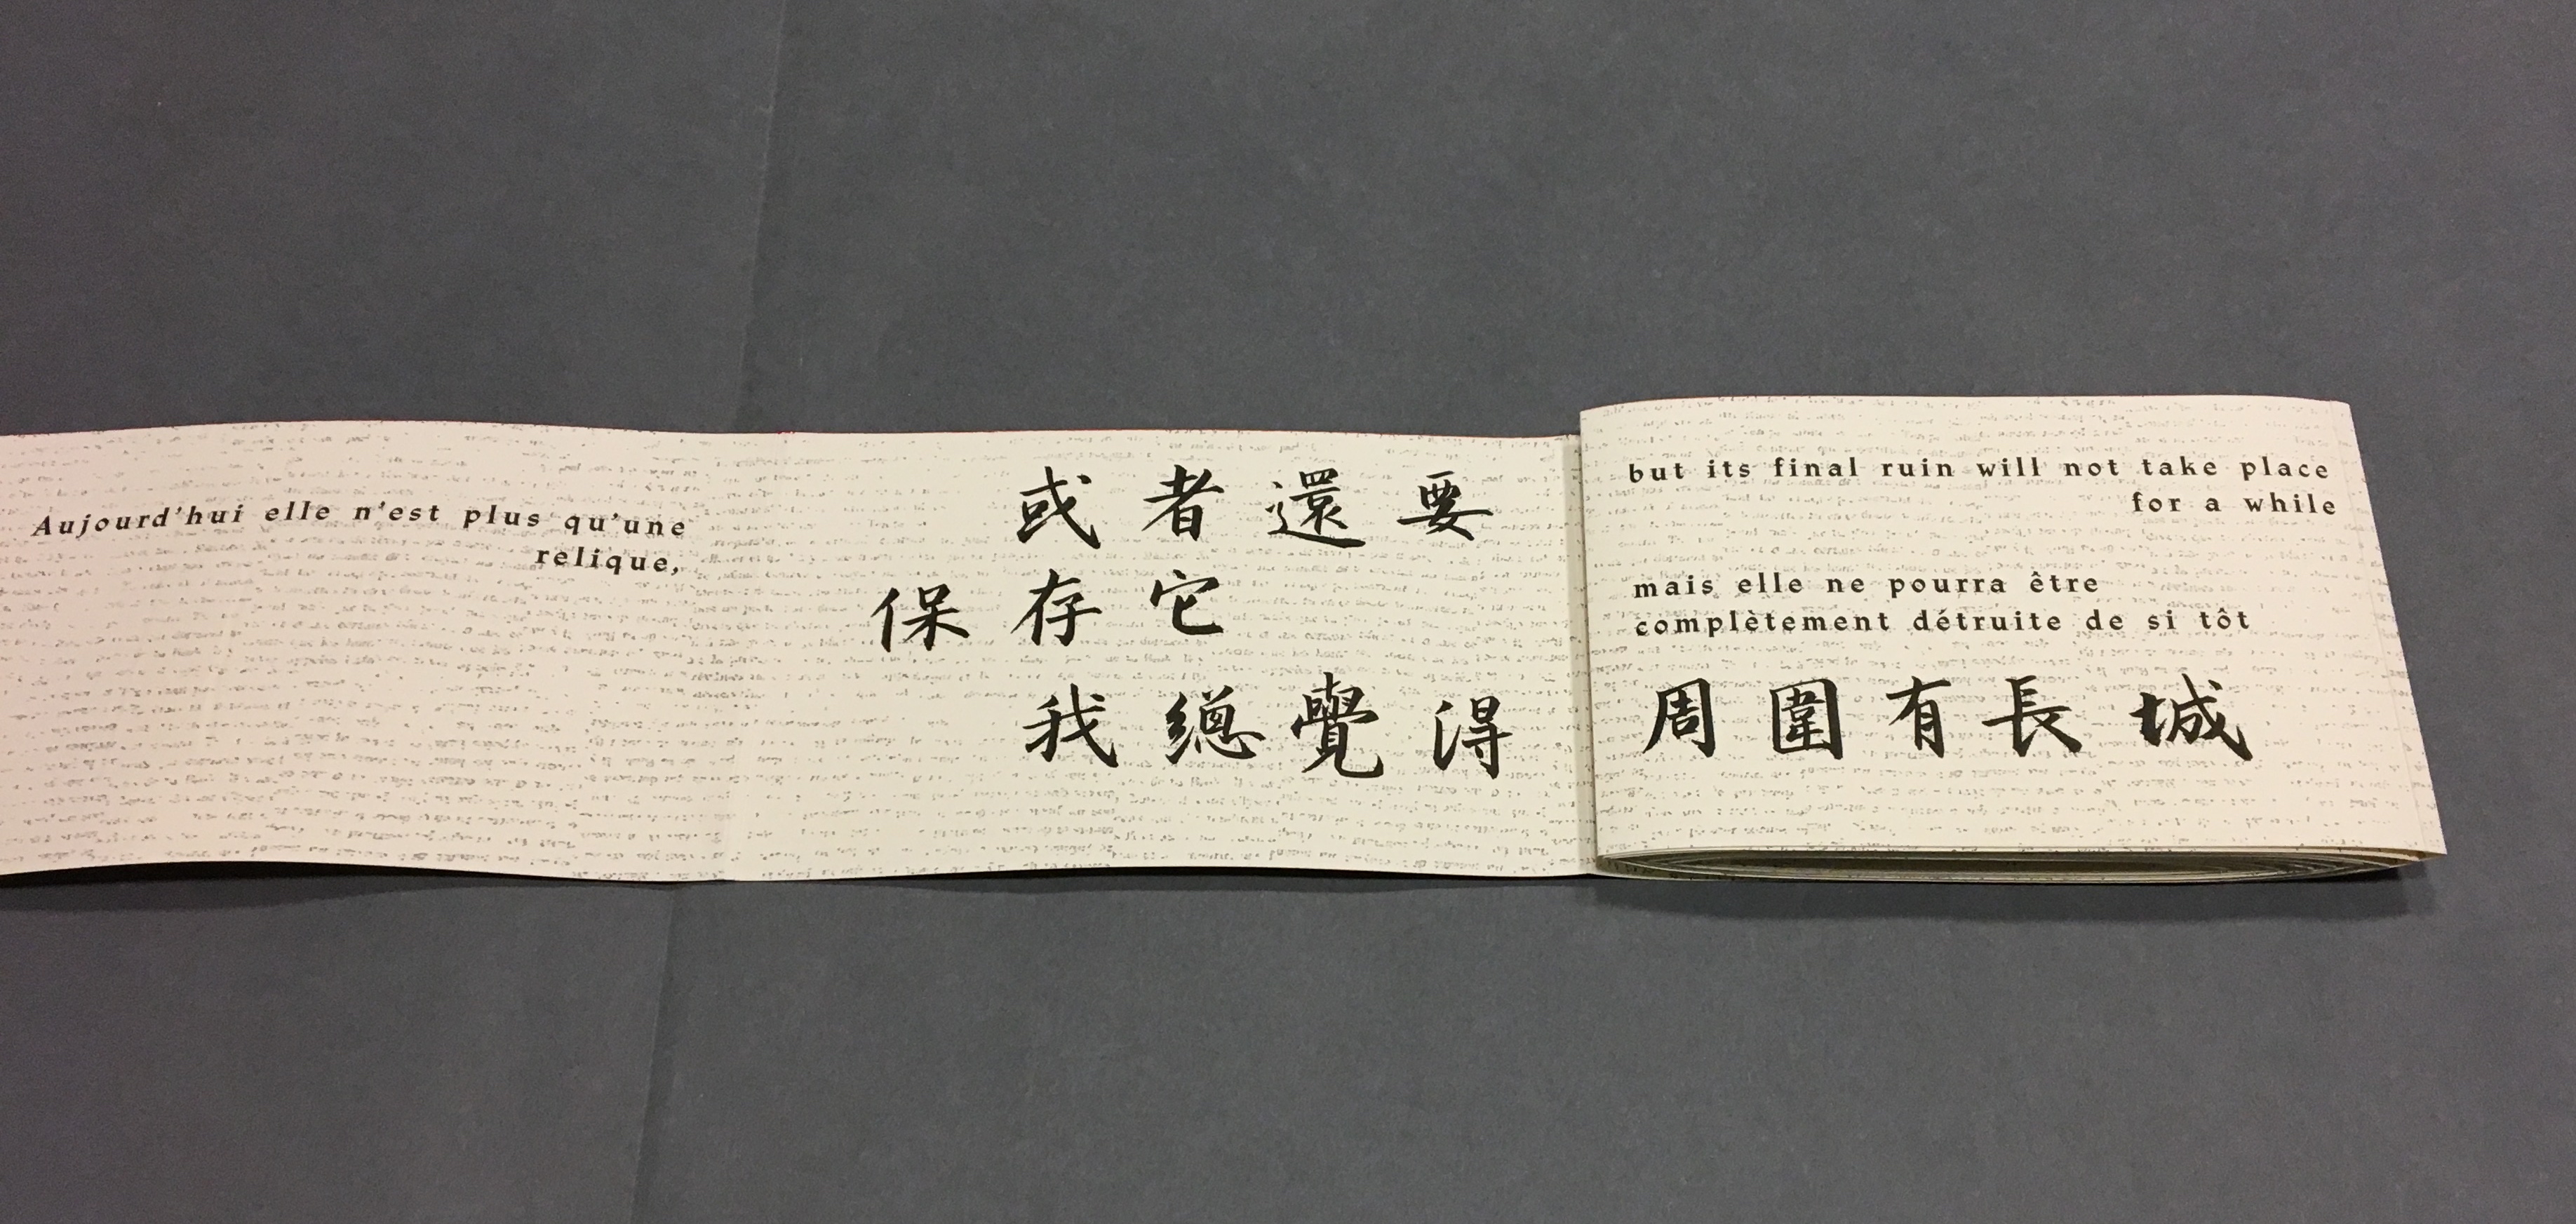 Aujourd'hui elle n'est plus qu'une
relique,
或者還要
保存它
我總覺得
but its final ruin will not take place
for a while
mais elle ne pourra être
complètement détruite de si tôt
周圍有長城